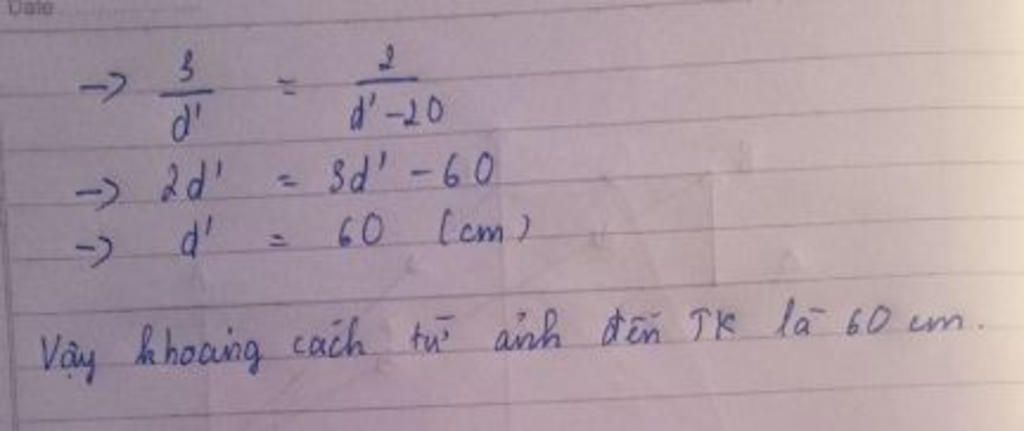 Date
→ 3/d' = 2/d'-20
→ 2d' = 3d' - 60
→ d' = 60 (cm)
Vậy khoảng cách từ ảnh đến TK là 60 cm.